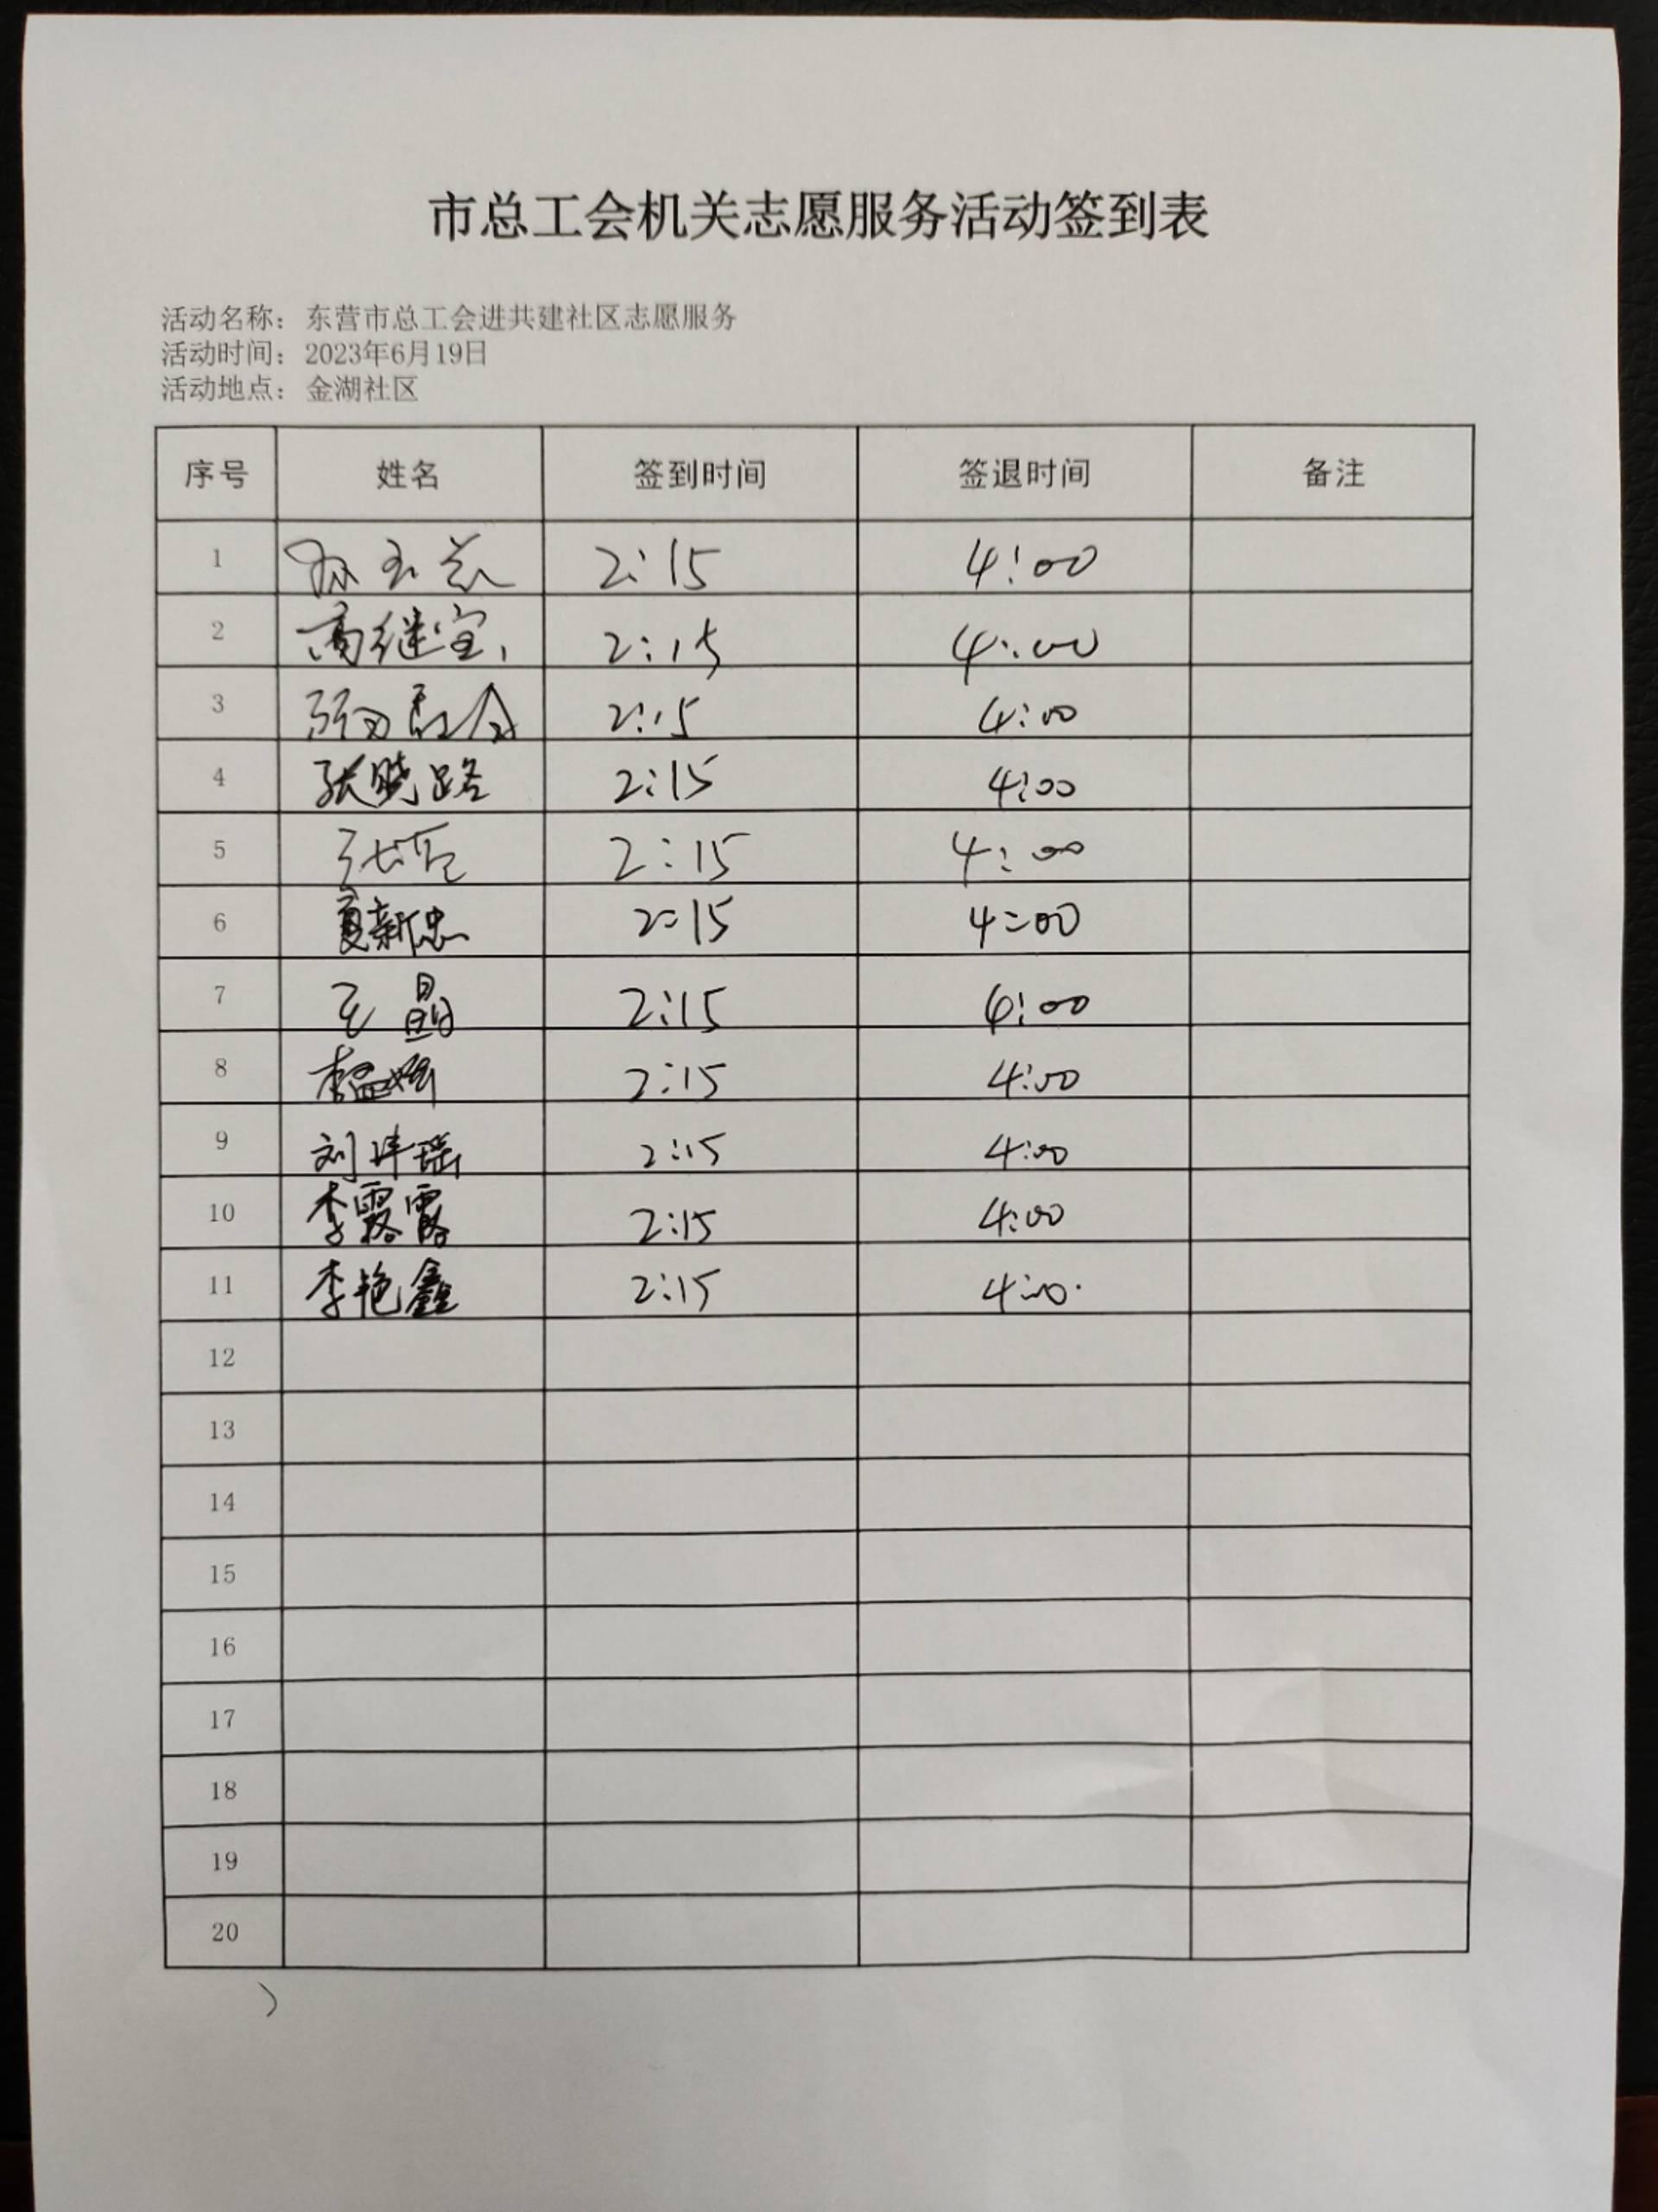 市总工会机关志愿服务活动签到表
活动名称：东营市总工会进共建社区志愿服务
活动时间：2023年6月19日
活动地点：金湖社区
序号 姓名 签到时间 签退时间 备注
1 2:15 4:00
2 高继宝 2:15 4:00
3 2:15 4:00
4 张晓路 2:15 4:00
5 2:15 4:00
6 夏新忠 2:15 4:00
7 王晶 2:15 4:00
8 2:15 4:00
9 刘 瑶 2:15 4:00
10 李露露 2:15 4:00
11 李艳鑫 2:15 4:00
12
13
14
15
16
17
18
19
20